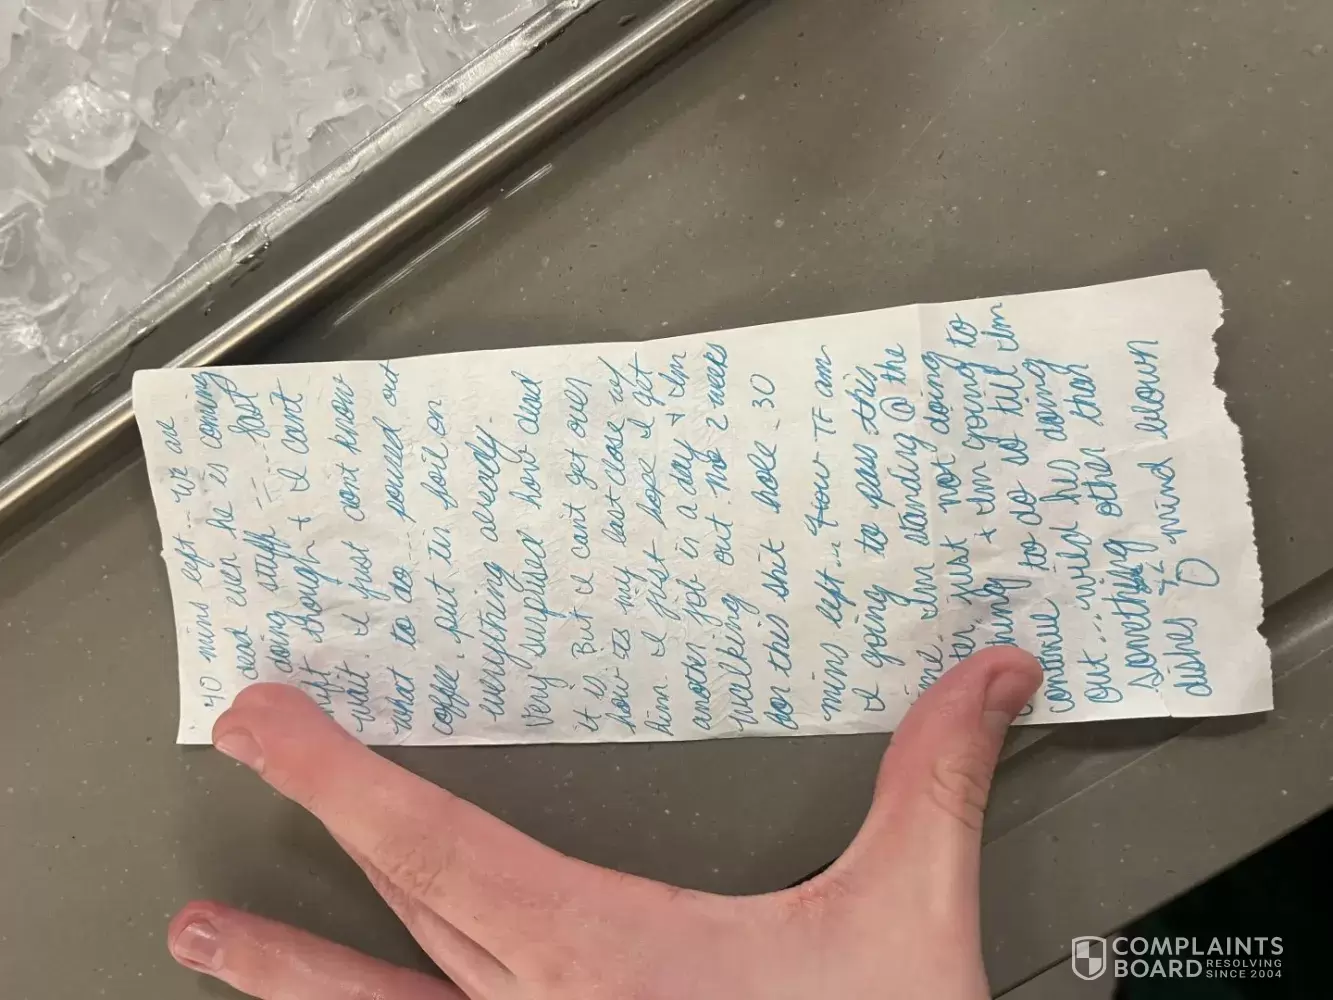 40 mins left... We are
dead even he is coming
doing stuff --- last
night though + I can't
wait. I just dont know
what to do .... pound out
coffee. put tes foil on
everything already.
Very surpised how dead
it is. But I cant get over
how its my last close w/
him. I just hope I get
another job in a day + Im
walking out no 2 weeks
for this shit hole. 30
mins left... How Tf am
I going to pass this
time. Im standing @ the
bar just not doing
+ Im going to
continue to do so till Im
out... wild hes doing
something other than
dishes
mind blown
COMPLAINTS
BOARD RESOLVING
SINCE 2004